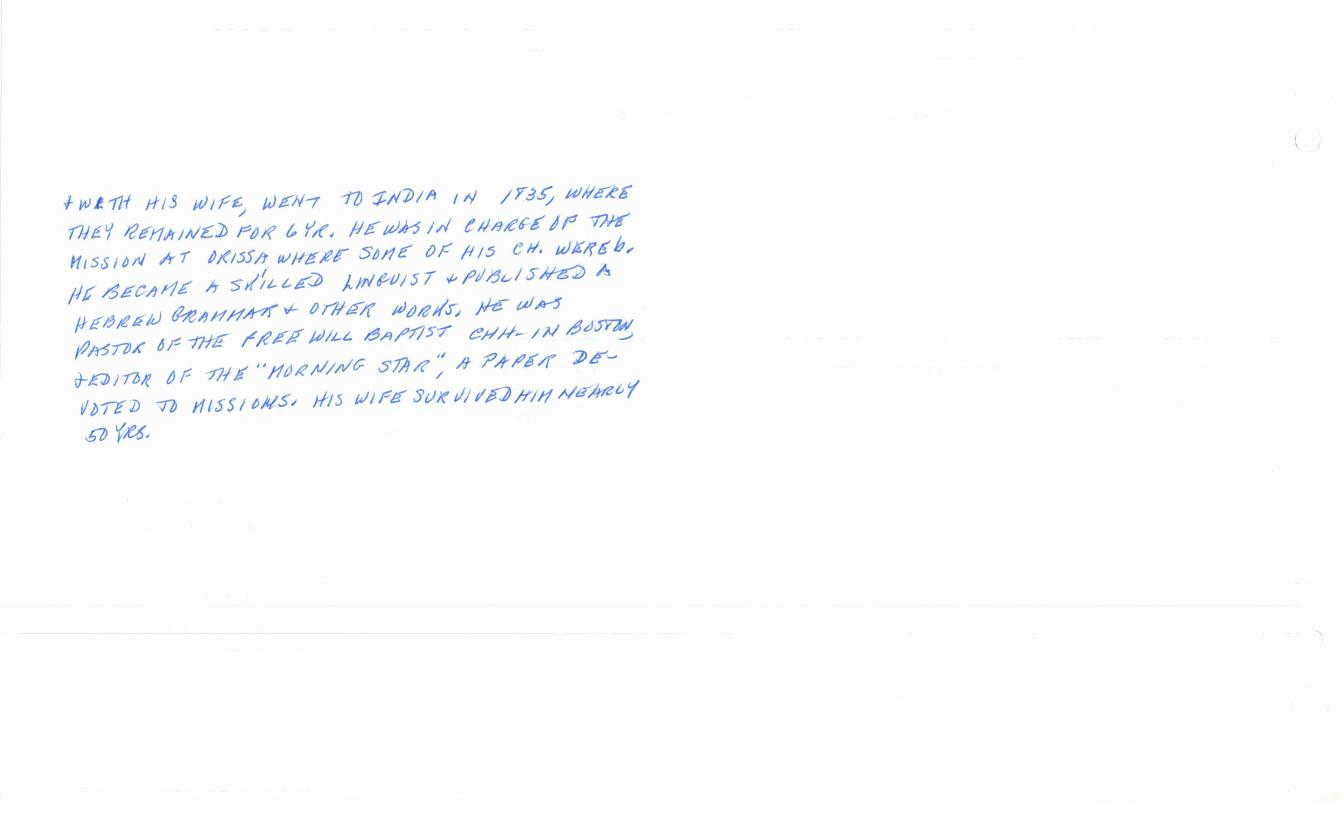 + WITH HIS WIFE, WENT TO INDIA IN 1835, WHERE
THEY REMAINED FOR 6 YR. HE WAS IN CHARGE OF THE
MISSION AT ORISSA WHERE SOME OF HIS CH. WERE b.
HE BECAME A SKILLED LINQUIST + PUBLISHED A
HEBREW GRAMMAR + OTHER WORKS. HE WAS
PASTOR OF THE FREE WILL BAPTIST CHH- IN BOSTON,
+ EDITOR OF THE "MORNING STAR", A PAPER DE-
VOTED TO MISSIONS. HIS WIFE SURVIVED HIM NEARLY
50 YRS.